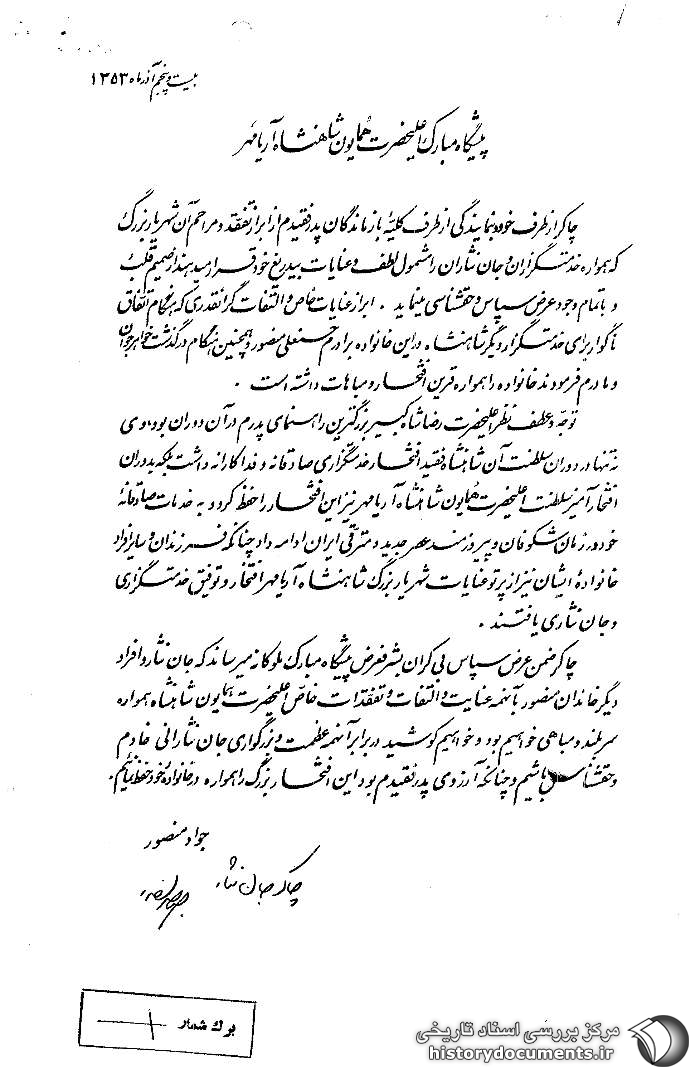 بیست و پنجم آذرماه ۱۳۵۳
پیشگاه مبارک اعلیحضرت همایون شاهنشاه آریامهر
چاکر از طرف خود و بنمایندگی از طرف کلیهٔ بازماندگان پدر فقیدم از ابراز تفقد و مراحم آن شهریار بزرگ
که همواره خدمتگزاران و جان نثاران را مشمول لطف و عنایات بیدریغ خود قرار میدهند از صمیم قلب
و با تمام وجود عرض سپاس و حقشناسی مینماید . ابراز عنایات خاص و التفات گرانقدری که هنگام اتفاق
ناگوار برای خدمتگزار دیگر شاهنشاه در این خانواده برادرم حسنعلی منصور و همچنین هنگام درگذشت خواهر جوان
و مادرم فرمودند خانواده را همواره قرین افتخار و مباهات داشته است .
توجه و عطف نظر اعلیحضرت رضا شاه کبیر بزرگترین راهنمای پدرم در آن دوران بود . وی
نه تنها در دوران سلطنت آن شاهنشاه فقید افتخار خدمتگزاری صادقانه و فداکارانه داشت بلکه بدوران
افتخارآمیز سلطنت اعلیحضرت همایون شاهنشاه آریامهر نیز این افتخار را حفظ کرد و به خدمات صادقانهٔ
خود در زمان شکوفان و پیروزمند عصر جدید و مترقی ایران ادامه داد چنانکه فرزندان و سایر افراد
خانوادهٔ ایشان نیز از پرتو عنایات شهریار بزرگ شاهنشاه آریامهر افتخار و توفیق خدمتگزاری
و جان نثاری یافتند .
چاکر ضمن عرض سپاس بی کران بشرفعرض پیشگاه مبارک ملوکانه میرساند که جان نثار و افراد
دیگر خاندان منصور با آنهمه عنایت و التفات و تفقدات خاص اعلیحضرت همایون شاهنشاه همواره
سربلند و مباهی خواهیم بود و خواهیم کوشید در برابر آنهمه عظمت و بزرگواری جان نثارانی خادم
و حقشناس باشیم و چنانکه آرزوی پدر فقیدم بود این افتخار بزرگ را همواره در خانواده خود حفظ نمائیم .
جواد منصور
چاکر جان نثار
برگ شمار ۱
مرکز بررسی اسناد تاریخی
historydocuments.ir